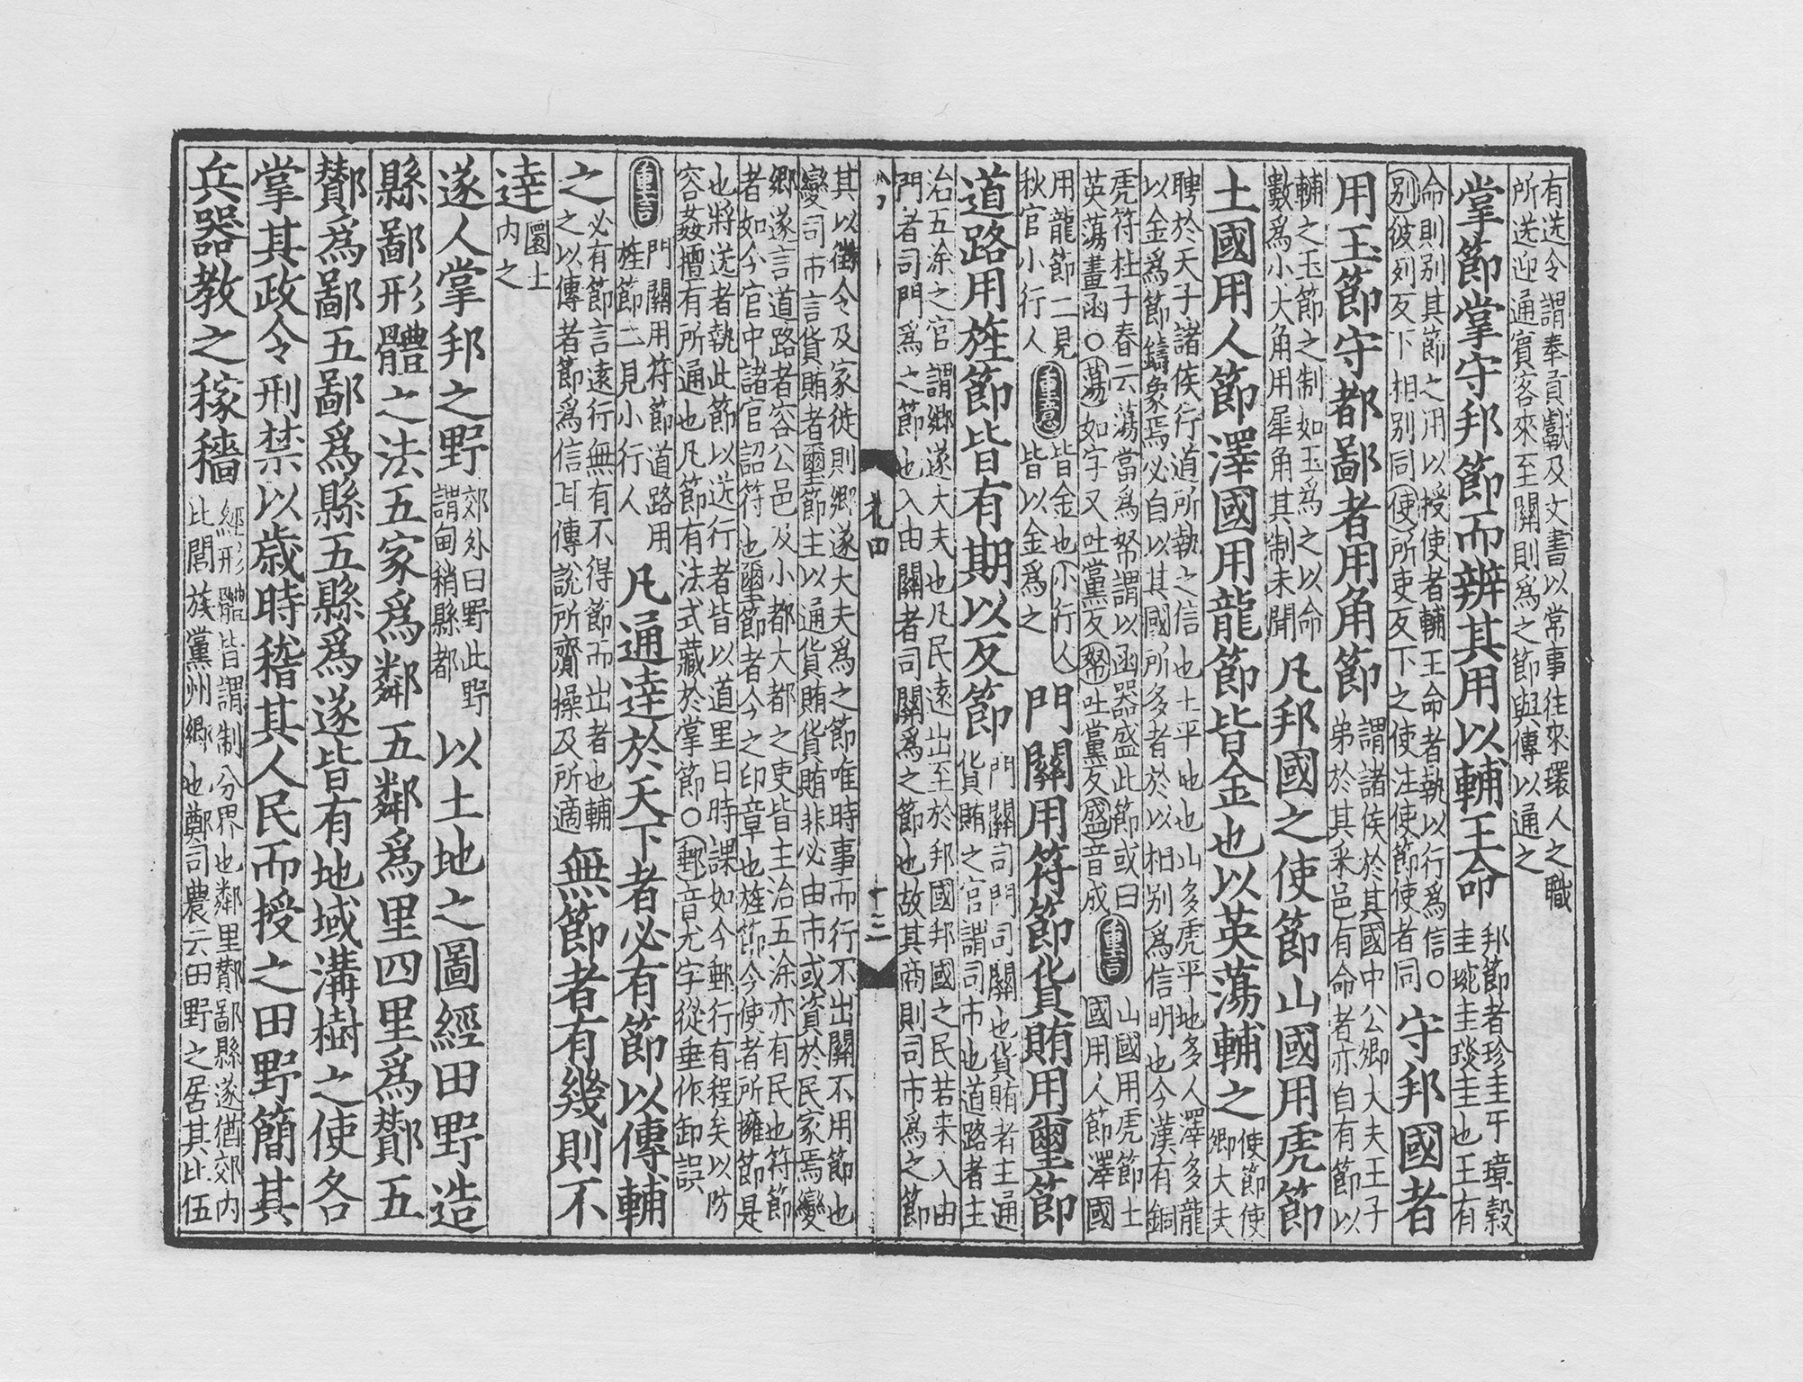 有送令謂奉貢獻及文書以常事往來環人之職
所送迎通賓客來至關則爲之節與傳以通之
掌節掌守邦節而辨其用以輔王命
邦節者珍圭牙璋穀
圭琬圭琰圭也王有
命則别其節之用以授使者輔王命者執以行爲信○
别彼列反下相别同使所吏反下之使注使節使者同
守邦國者
用玉節守都鄙者用角節
謂諸侯於其國中公卿大夫王子
弟於其采邑有命者亦自有節以
輔之玉節之制如玉爲之以命
數爲小大角用犀角其制未聞
凡邦國之使節山國用虎節
土國用人節澤國用龍節皆金也以英蕩輔之
使節使
卿大夫
聘於天子諸侯行道所執之信也土平地也山多虎平地多人澤多龍
以金爲節鑄象焉必自以其國所多者於以相别爲信明也今漢有銅
虎符杜子春云蕩當爲帑謂以函器盛此節或曰
英蕩畫函○蕩如字又吐黨反帑吐黨反盛音成
重言
山國用虎節土
國用人節澤國
用龍節二見
秋官小行人
重意
皆金也小行人
皆以金爲之
門關用符節貨賄用璽節
道路用旌節皆有期以反節
門關司門司關也貨賄者主通
貨賄之官謂司市也道路者主
治五涂之官謂鄉遂大夫也凡民遠出至於邦國邦國之民若來入由
門者司門爲之節也入由關者司關爲之節也故其商則司市爲之節
礼四
十三
其以徵令及家徙則鄉遂大夫爲之節唯時事而行不出關不用節也
變司市言貨賄者璽節主以通貨賄貨賄非必由市或資於民家焉變
鄉遂言道路者容公邑及小都大都之吏皆主治五涂亦有民也符節
者如今宮中諸官詔符也璽節者今之印章也旌節今使者所擁節是
也將送者執此節以送行者皆以道里日時課如今郵行有程矣以防
容姦擅有所通也凡節有法式藏於掌節○郵音尤字從垂作卸誤
重言
門關用符節道路用
旌節二見小行人
凡通逹於天下者必有節以傳輔
之
必有節言遠行無有不得節而出者也輔
之以傳者節爲信耳傳說所齎操及所適
無節者有幾則不
逹
圜土
内之
遂人掌邦之野
郊外曰野此野
謂甸稍縣都
以土地之圖經田野造
縣鄙形體之法五家爲鄰五鄰爲里四里爲酇五
酇爲鄙五鄙爲縣五縣爲遂皆有地域溝樹之使各
掌其政令刑禁以歲時稽其人民而授之田野簡其
兵器教之稼穡
經形體皆謂制分界也鄰里酇鄙縣遂猶郊内
比閭族黨州鄉也鄭司農云田野之居其比伍